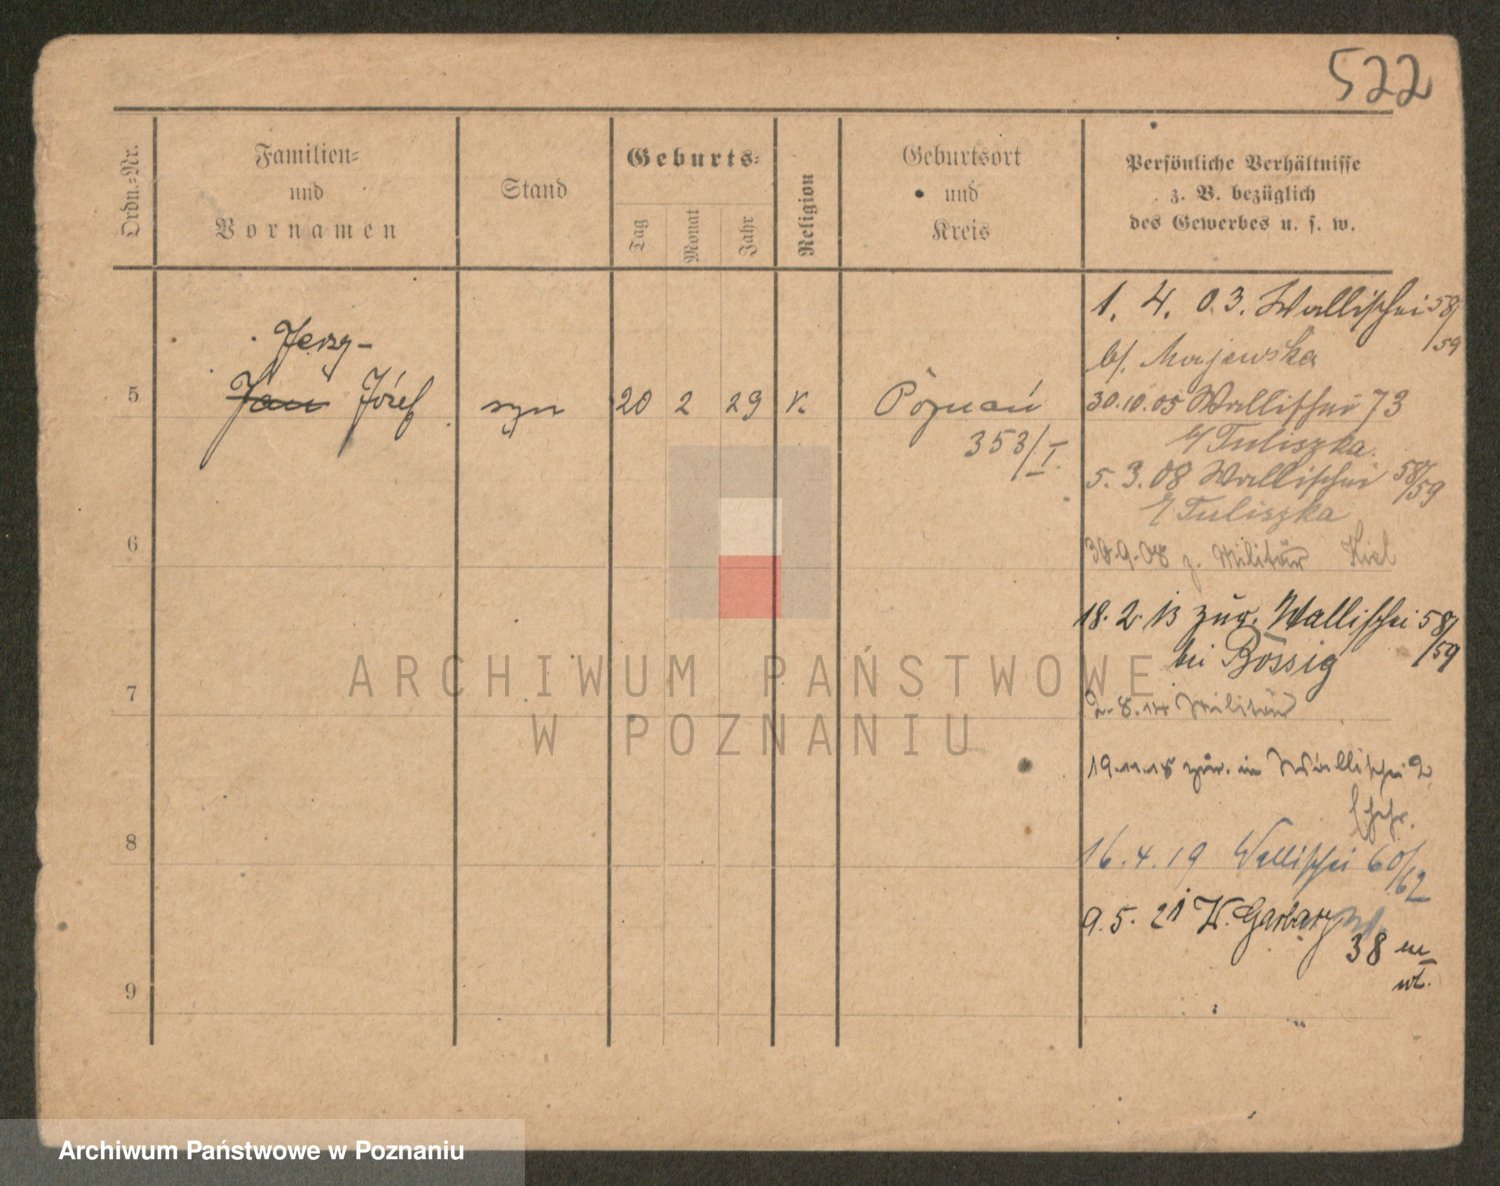 522
Ordn.-Nr.
Familien-
und
Vornamen
Stand
Geburts-
Tag
Monat
Jahr
Religion
Geburtsort
und
Kreis
Persönliche Verhältnisse
z. B. bezüglich
des Gewerbes u. s. w.
Jerzy-
5 Jan Józef syn 20 2 29 K. Poznań
353/I.
6
7
8
9
1. 4. 03. Wallischei 58/
59
b/. Majewska
30.10.05 Wallischei 73
b/ Tuliszka.
5. 3. 08 Wallischei 58/
59
b/ Tuliszka
30.9.08 z. Militär Kiel
18. 2. 13 zug. Wallischei 58/
59
bei Bossig
2.8.14 Militär
19.11.18 zur. in Wallischei 2
16. 4. 19 Wallischei 60/
62
9. 5. 21 W. Garbary
38 m
wł.
ARCHIWUM PAŃSTWOWE
W POZNANIU
Archiwum Państwowe w Poznaniu